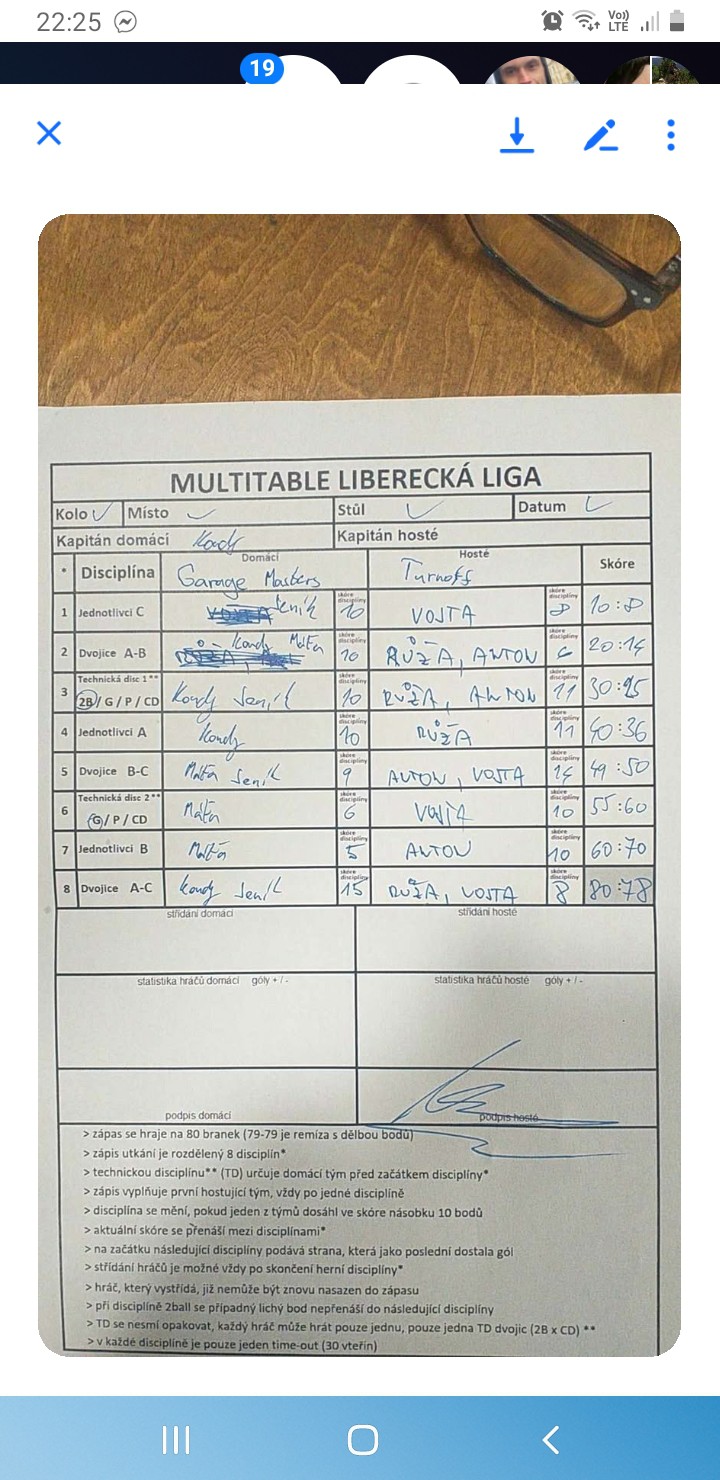 22:25
Vo))
LTE
19
MULTITABLE LIBERECKÁ LIGA
Kolo Místo Stůl Datum
Kapitán domácí Kendy Kapitán hosté
* Disciplína Domácí Garage Masters Hosté Turnoff Skóre
1 Jednotlivci C Jeník skóre disciplíny 10 VOJTA skóre disciplíny 8 10:8
2 Dvojice A-B Kendy Matěa skóre disciplíny 10 RŮŽA, ANTON skóre disciplíny 6 20:14
3 Technická disc 1** 2B / G / P / CD Kendy Jeník skóre disciplíny 10 RŮŽA, ANTON skóre disciplíny 11 30:25
4 Jednotlivci A Kendy skóre disciplíny 10 RŮŽA skóre disciplíny 11 40:36
5 Dvojice B-C Jeník skóre disciplíny 9 ANTON, VOJTA skóre disciplíny 14 49:50
6 Technická disc 2** G / P / CD skóre disciplíny 6 VOJTA skóre disciplíny 10 55:60
7 Jednotlivci B skóre disciplíny 5 ANTON skóre disciplíny 10 60:70
8 Dvojice A-C Kendy Jeník skóre disciplíny 15 RŮŽA, VOJTA skóre disciplíny 8 80:78
střídání domácí střídání hosté
statistika hráčů domácí góly + / - statistika hráčů hosté góly + / -
podpis domácí podpis hosté
> zápas se hraje na 80 branek (79-79 je remíza s dělbou bodů)
> zápis utkání je rozdělený 8 disciplín*
> technickou disciplínu** (TD) určuje domácí tým před začátkem disciplíny*
> zápis vyplňuje první hostující tým, vždy po jedné disciplíně
> disciplína se mění, pokud jeden z týmů dosáhl ve skóre násobku 10 bodů
> aktuální skóre se přenáší mezi disciplínami*
> na začátku následující disciplíny podává strana, která jako poslední dostala gól
> střídání hráčů je možné vždy po skončení herní disciplíny*
> hráč, který vystřídá, již nemůže být znovu nasazen do zápasu
> při disciplíně 2ball se případný lichý bod nepřenáší do následující disciplíny
> TD se nesmí opakovat, každý hráč může hrát pouze jednu, pouze jedna TD dvojic (2B x CD) **
> v každé disciplíně je pouze jeden time-out (30 vteřin)